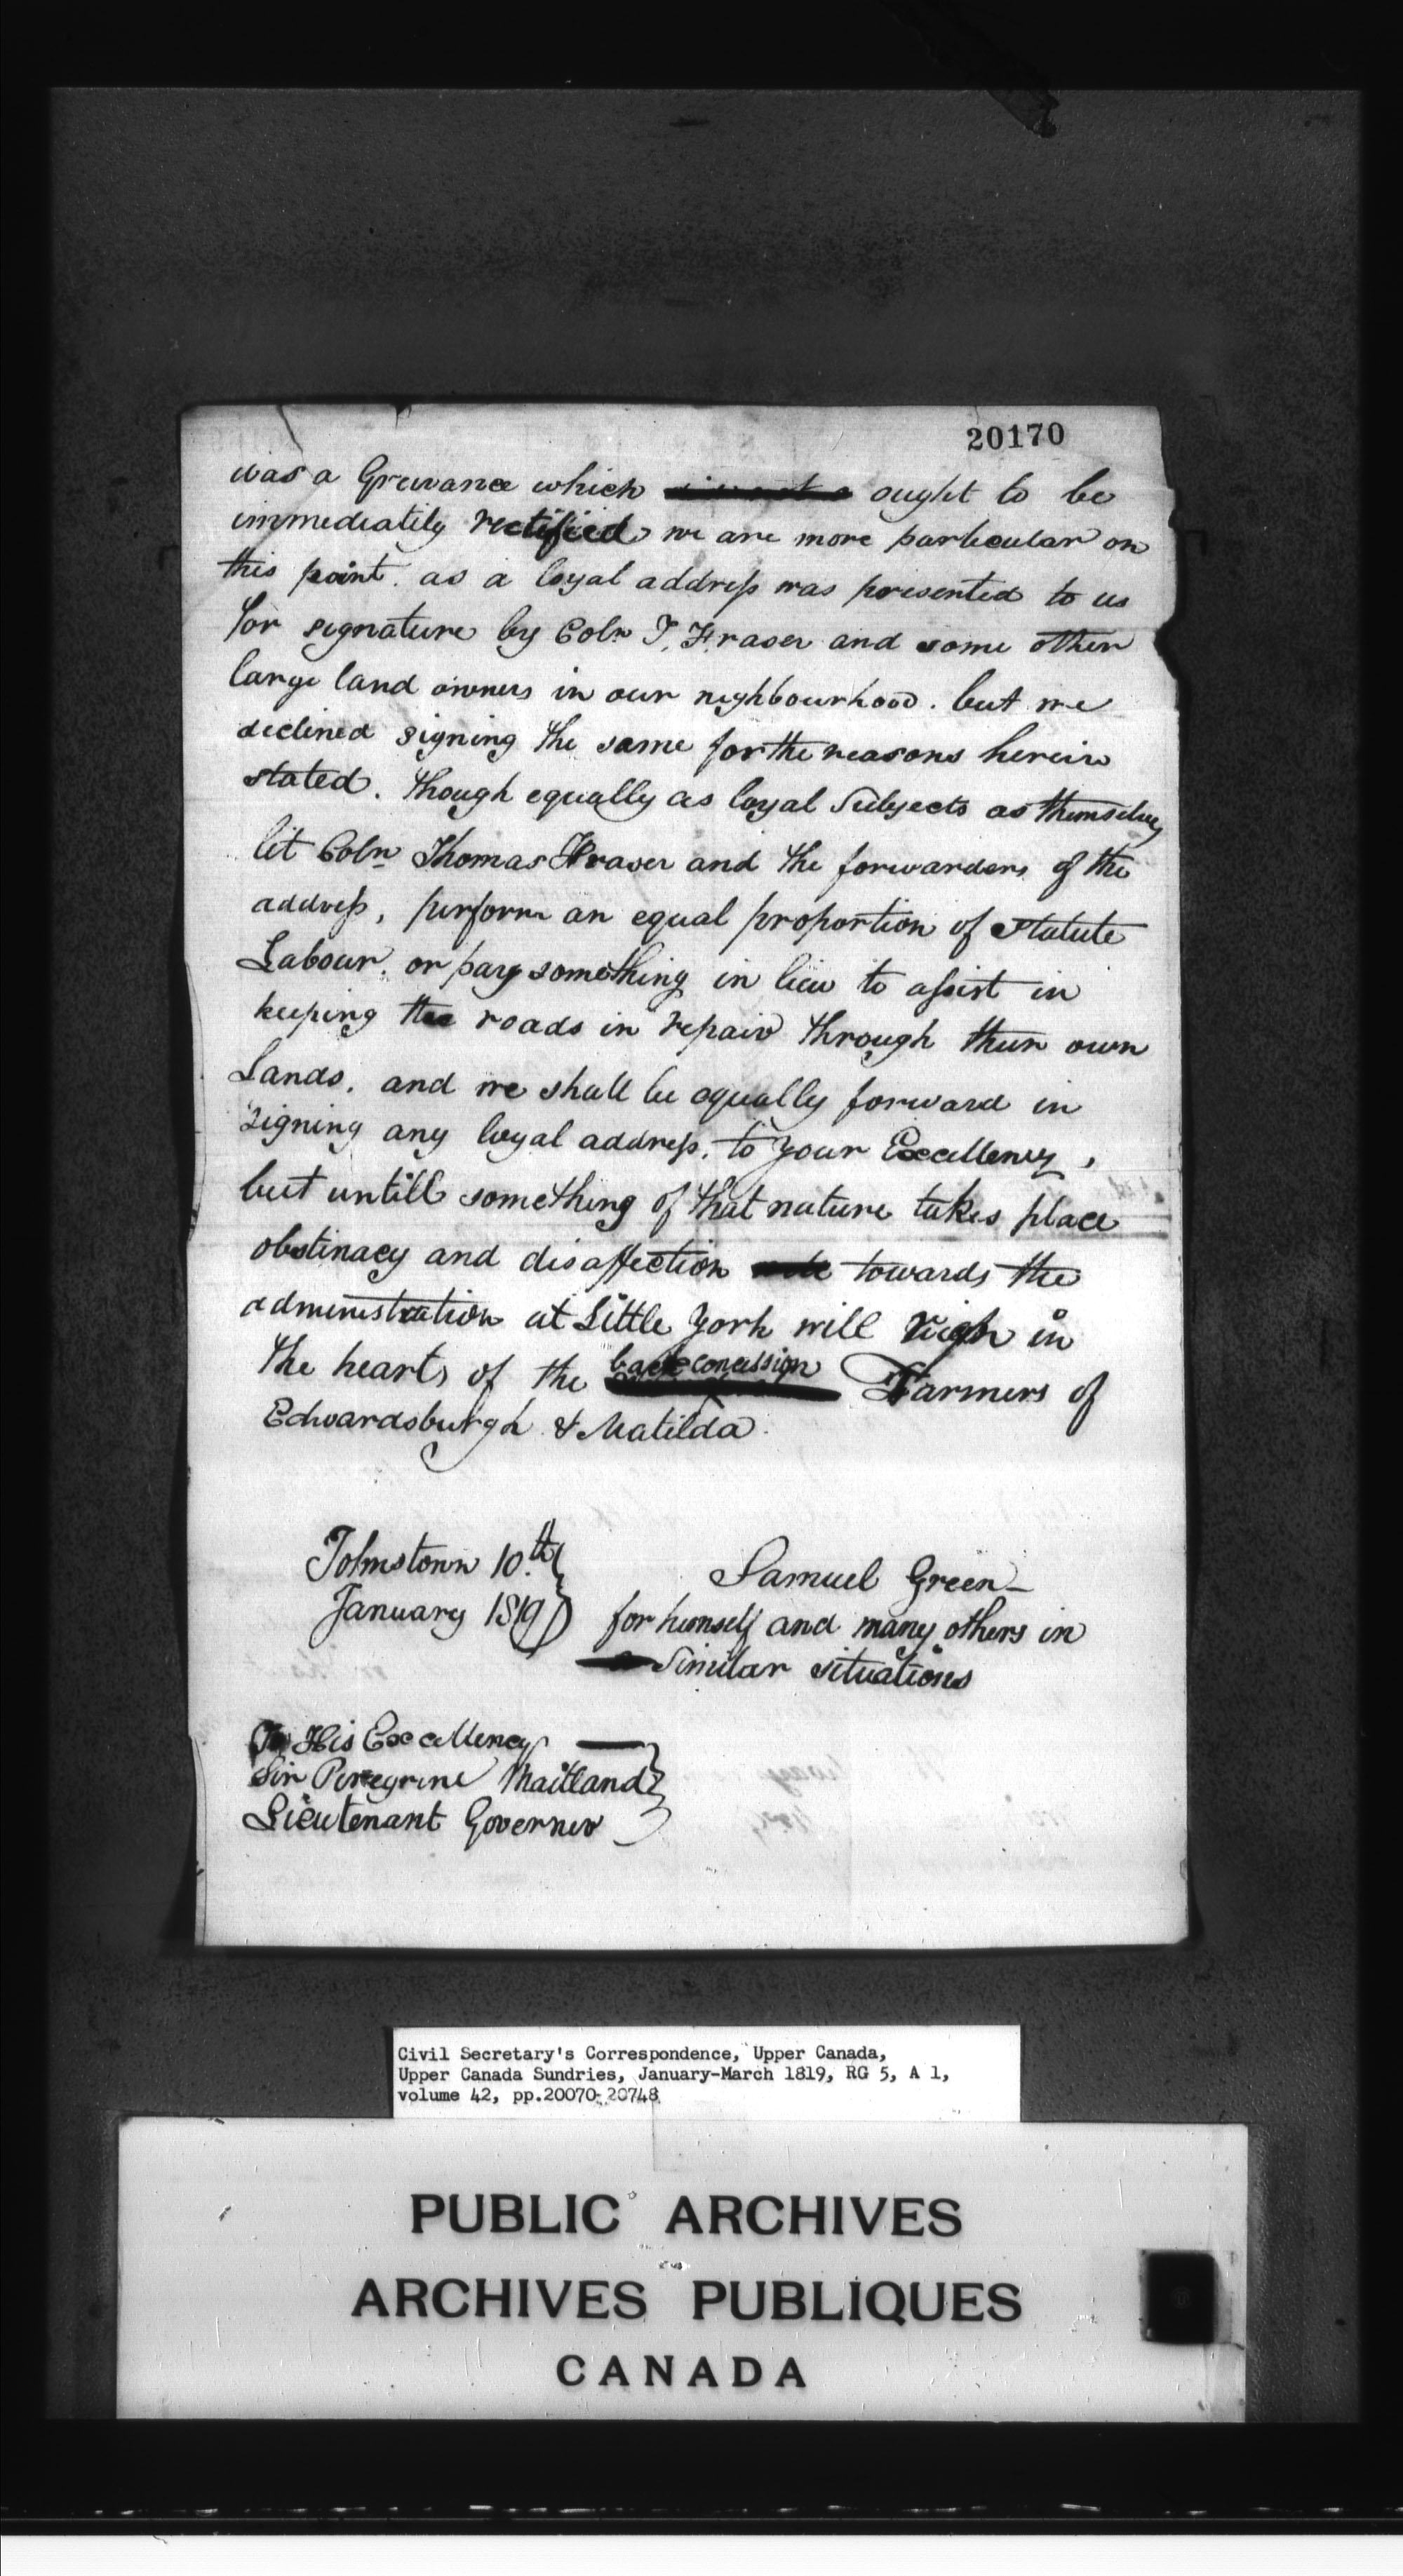 20170
was a Grievance which ought to be
immediatily rectified we are more particular on
this point. as a loyal address was presented to us
for signature by Coln T. Fraser and some other
large land owners in our neighbourhood. but we
declined signing the same for the reasons herein
stated. though equally as loyal Subjects as themselves
let Coln Thomas Fraser and the forwarders of the
address, perform an equal proportion of Statute
Labour. or pay something in lieu to assist in
keeping the roads in repair through their own
Lands. and we shall be equally forward in
signing any loyal address. to your Excellency,
but untill something of that nature takes place
obstinacy and disaffection towards the
administration at Little York will reign in
the hearts of the back concession Farmers of
Edwardsburgh & Matilda.
Johnstown 10.th
January 1819
Samuel Green
for himself and many others in
Similar situations
To His Excellency
Sir Peregrine Maitland
Lieutenant Governor
Civil Secretary's Correspondence, Upper Canada,
Upper Canada Sundries, January-March 1819, RG 5, A 1,
volume 42, pp.20070-20748
PUBLIC ARCHIVES
ARCHIVES PUBLIQUES
CANADA